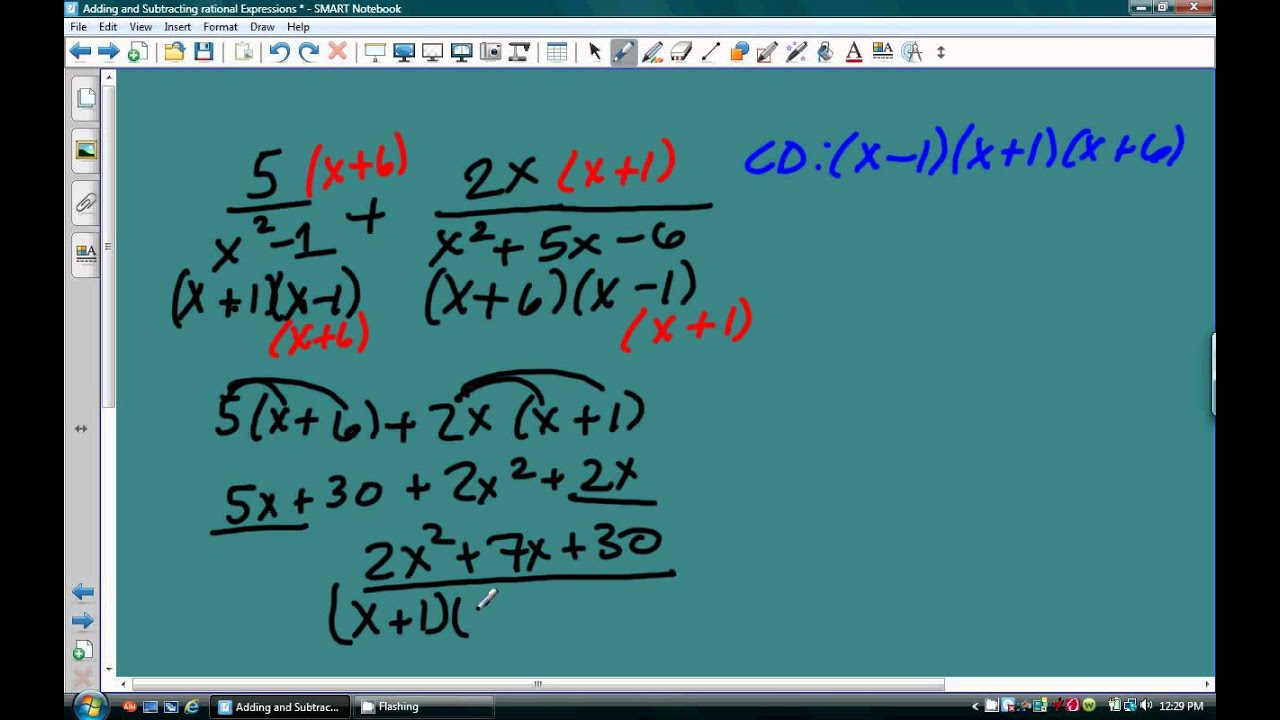 Adding and Subtracting rational Expressions * - SMART Notebook
File Edit View Insert Format Draw Help
CD:(x-1)(x+1)(x+6)
5(x+6) + 2x(x+1)
x²-1 x²+5x-6
(x+1)(x-1) (x+6)(x-1)
(x+6) (x+1)
5(x+6)+2x(x+1)
5x+30+2x²+2x
2x²+7x+30
(x+1)(
Adding and Subtrac... Flashing 12:29 PM